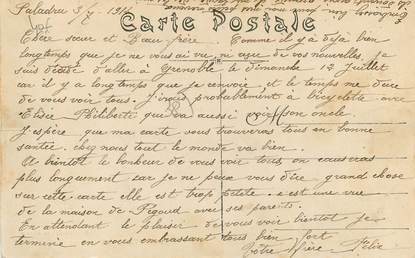 Paladru 3/7 1914
Carte Postale
Chère sœur et Beau frère Comme il y a déja bien
longtemps que je ne vous ai vu, ni reçue de vos nouvelles, je
suis décidé d'aller à Grenoble le dimanche 12 Juillet
car il y a longtemps que je renvoie, et le temps me dure
de vous voir tous. J'irai probablement à bicyclette avec
Elisée Philiberte qui va aussi voir son oncle.
J'espère que ma carte vous trouveras tous en bonne
santée. chez nous tout le monde va bien.
A bientôt le bonheur de vous voir tous, on causeras
plus longuement car je ne peux vous dire grand chose
sur cette carte elle est trop petite. c'est une vue
de la maison de Pégoud avec ses parents.
En attendant le plaisir de vous voir bientôt je
termine en vous embrassant tous bien fort
Votre frère Félix